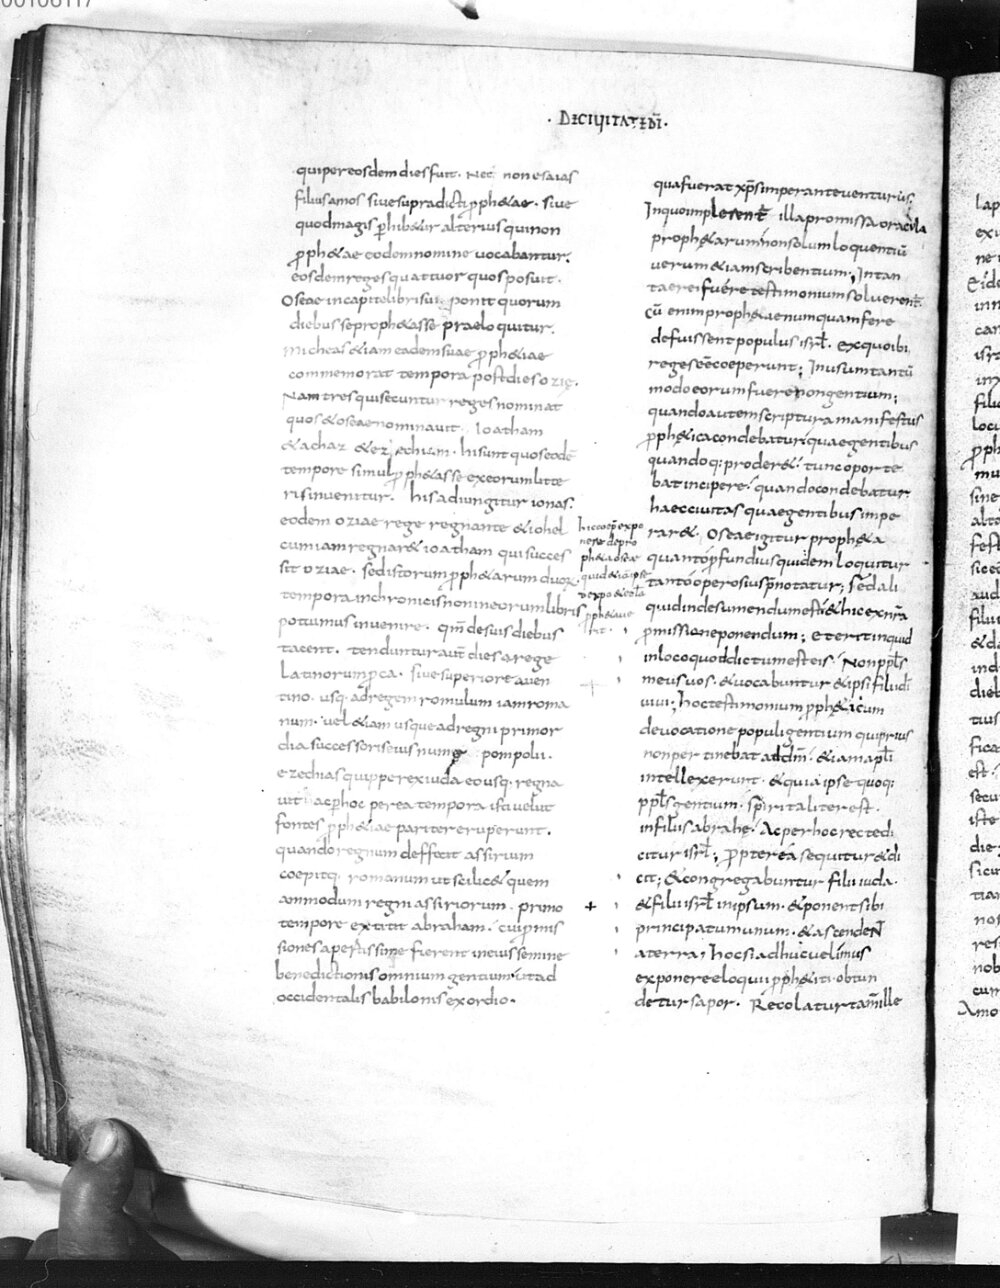 00106117
· DE CIVITATE DĪ ·
qui per eosdem dies fuit. Nec non esaias
filius amos sive supradicti pphetae · sive
quod magis phibetur alterius qui non
ppheta eodem nomine vocabantur.
eosdem reges quattuor quos posuit.
Oseae in capite libri sui ponit quorum
diebus se prophetasse praeloquitur.
micheas etiam eadem suae pphetiae
commemorat tempora post dies ozię.
Nam tres qui secuntur reges nominat
quos et oseae nominavit. Ioatham
et achaz et ezechiam. hi sunt quos eodē
tempore simul pphetasse ex eorum litte
ris invenitur. his adiungitur ionas.
eodem oziae rege regnante et iohel
cum iam regnaret ioatham qui succes
sit oziae. sed istorum pphetarum duorꝫ
tempora in chronicis non in eorum libris
potuimus invenire. qm̄ de suis diebus
tacent. tenduntur aut̄ dies a rege
latinorum pca. sive superiore aven
tino. usq· ad regem romulum iam roma
num · vel etiam usque ad regni primor
dia successoris eius nume pompolii.
ezechias quippe rex iuda eo usq· regna
vit ac p hoc per ea tempora isti velut
fontes pphetiae pariter eruperunt.
quando regnum deffecit assirium
coepitq· romanum ut scilicet quem
ammodum regni assiriorum primo
tempore extitit abraham · cui pmis
siones apertissime fierent in eius semine
benedictionis omnium gentium · ita ad
occidentalis babilonis exordio ·
hic coep̄ expo
nere de pro
pheta oseae
quid etiā ipse
pphetave
rit.
+
+
qua fuerat xp̄s imperante venturus.
In quo implerent̄ illa promissa oracula
prophetarum non solum loquentiū
verum etiam scribentium; In tan
tae rei future testimonium solverent̄
cū enim prophetae numquam fere
defuissent populus isr̄l. ex quo ibi
reges eē coeperunt; In usum tantū
modo eorum fuere non gentium;
quando autem scriptura manifestius
pphetica condebatur quae gentibus
quandoq: prodere&. tunc oporte
bat incipere. quando condebatur
haec civitas quae gentibus impe
raret. Oseae igitur propheta
quanto pfundius quidem loquitur
tanto operosius pnotatur; sed ali
quid inde sumendum est et hic ex nr̄a
pmissione ponendum; et erit inquid
in loco quo dictum est eis. Non ppls
meus vos. et vocabuntur et ipsi filii dī
vivi; hoc testimonium ppheticum
de vocatione populi gentium qui prius
non pertinebat ad dm̄. etiam apl̄i
intellexerunt. et quia ipse quoq:
ppls gentium. spiritaliter est.
in filiis abrahę. Ac per hoc recte di
citur isr̄l; pp terea sequitur et di
cit; et congregabuntur filii iuda.
et filii isr̄l in ipsum. et ponent sibi
principatum unum. et ascendent
a terra; hoc si adhuc velimus
exponere eloquii pphetici obtun
detur sapor. Recolatur tam̄ ille